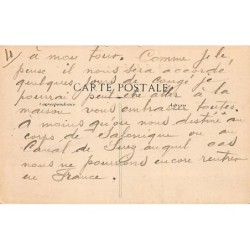 11
à mon tour. Comme je le
pense, il nous sera accordé
quelques jours de congé je
CARTE POSTALE
pourrai peut-être aller à la
Correspondance
maison vous embrasser toutes.
à moins qu'on nous destine au
corps de Salonique ou au
Canal de Suez auquel cas
nous ne pourrons encore rentrer
en France.